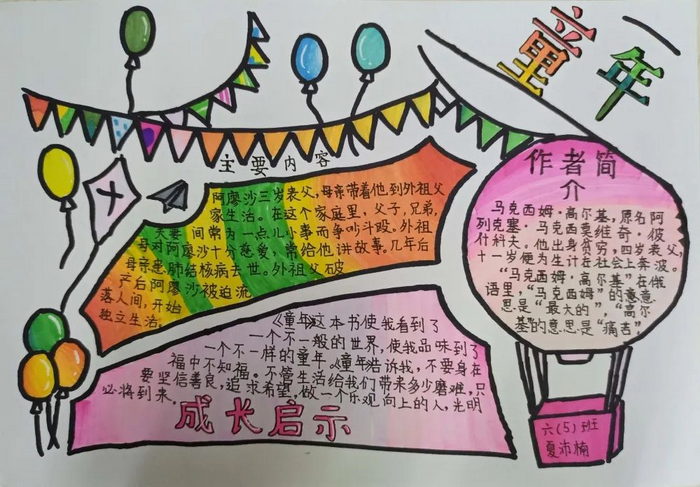 童年
主要内容
阿廖沙三岁丧父，母亲带着他到外祖父
家生活。在这个家庭里，父子，兄弟，
夫妻间常为一点儿小事而争吵斗殴。外祖
母对阿廖沙十分慈爱，常给他讲故事。几年后
母亲患肺结核病去世。外祖父破
产后阿廖沙被迫流
落人间，开始
独立生活。
作者简
介
马克西姆·高尔基，原名阿
列克塞·马克西莫维奇·彼
什科夫。他出身贫穷，四岁丧父，
十一岁便为生计在社会上奔波。
“马克西姆·高尔基”在俄
语里，“马克西姆”的意
思是“最大的”，“高尔
基”的意思是“痛苦”
《童年》这本书使我看到了
一个不一般的世界，使我品味到了
一个不一样的童年。《童年》告诉我，不要身在
福中不知福。不管生活给我们带来多少磨难，只
要坚信善良，追求希望，做一个乐观向上的人，光明
必将到来。
成长启示
六(5)班
夏沛楠